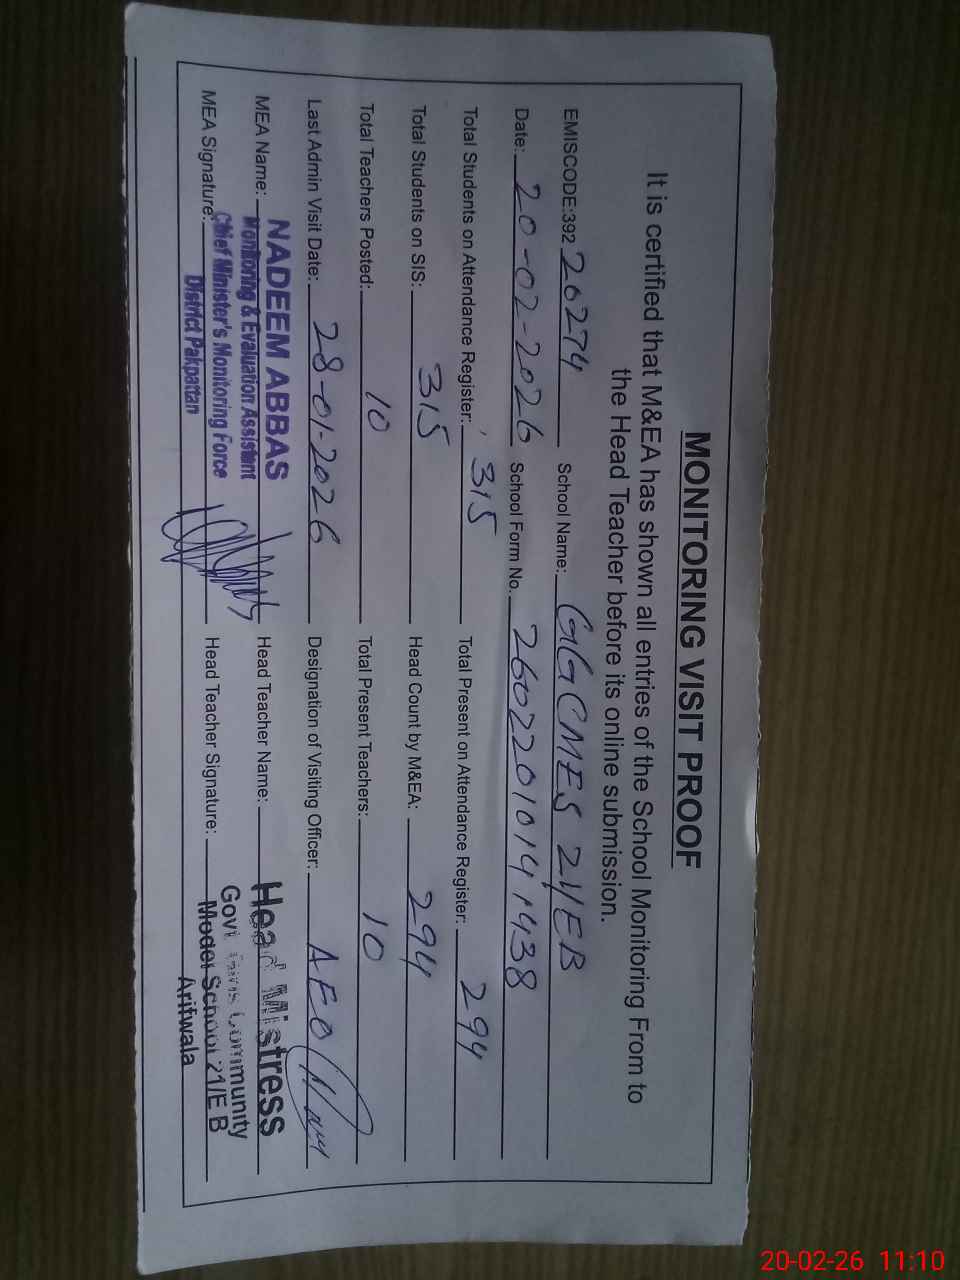 MONITORING VISIT PROOF
It is certified that M&EA has shown all entries of the School Monitoring From to
the Head Teacher before its online submission.
EMISCODE:392 20274 School Name: GGCMES 21/EB
Date: 20-02-2026 School Form No. 26022010141438
Total Students on Attendance Register: 315 Total Present on Attendance Register: 294
Total Students on SIS: 315 Head Count by M&EA: 294
Total Teachers Posted: 10 Total Present Teachers: 10
Last Admin Visit Date: 28-01-2026 Designation of Visiting Officer: AEO
MEA Name: NADEEM ABBAS Head Teacher Name: Head Mistress
Monitoring & Evaluation Assistant Govt. Girls Community
MEA Signature: Chief Minister's Monitoring Force Head Teacher Signature: Model School 21/E B
District Pakpattan Arifwala
20-02-26 11:10